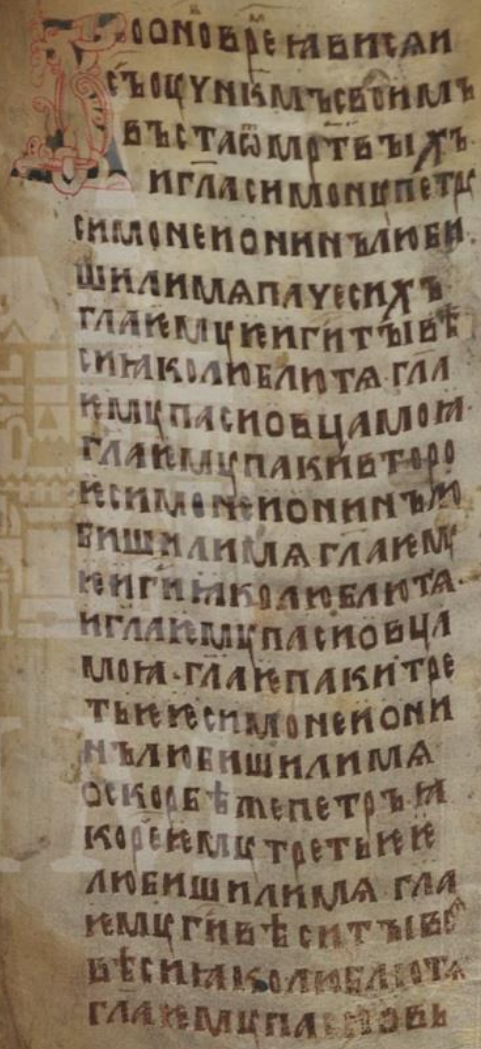 Воонобрѣмꙗвисѧи
съоцꙋнкмъсвоимъ
въставъѡмртвыхъ
игласимонꙋпетрꙋ
симонеионинълюби
шилимѧпачесихъ
глаѥмꙋѥигитывѣ
сиꙗколюблютѧ·гла
ѥмꙋпасиовцамоꙗ·
глаѥмꙋпакивторо
ѥсимонеионинълю
бишилимѧглаѥмꙋ
ѥигиꙗколюблютѧ·
иглаѥмꙋпасиовца
моꙗ·глаѥпакитре
тьѥѥсимонеиони
нълюбишилимѧ
оскорбѣжепетръꙗ
кореѥмꙋтретьѥѥ
любишилимѧ·гла
ѥмꙋгивѣситывсѧ
вѣсиꙗколюблютѧ
глаѥмꙋпасиовь